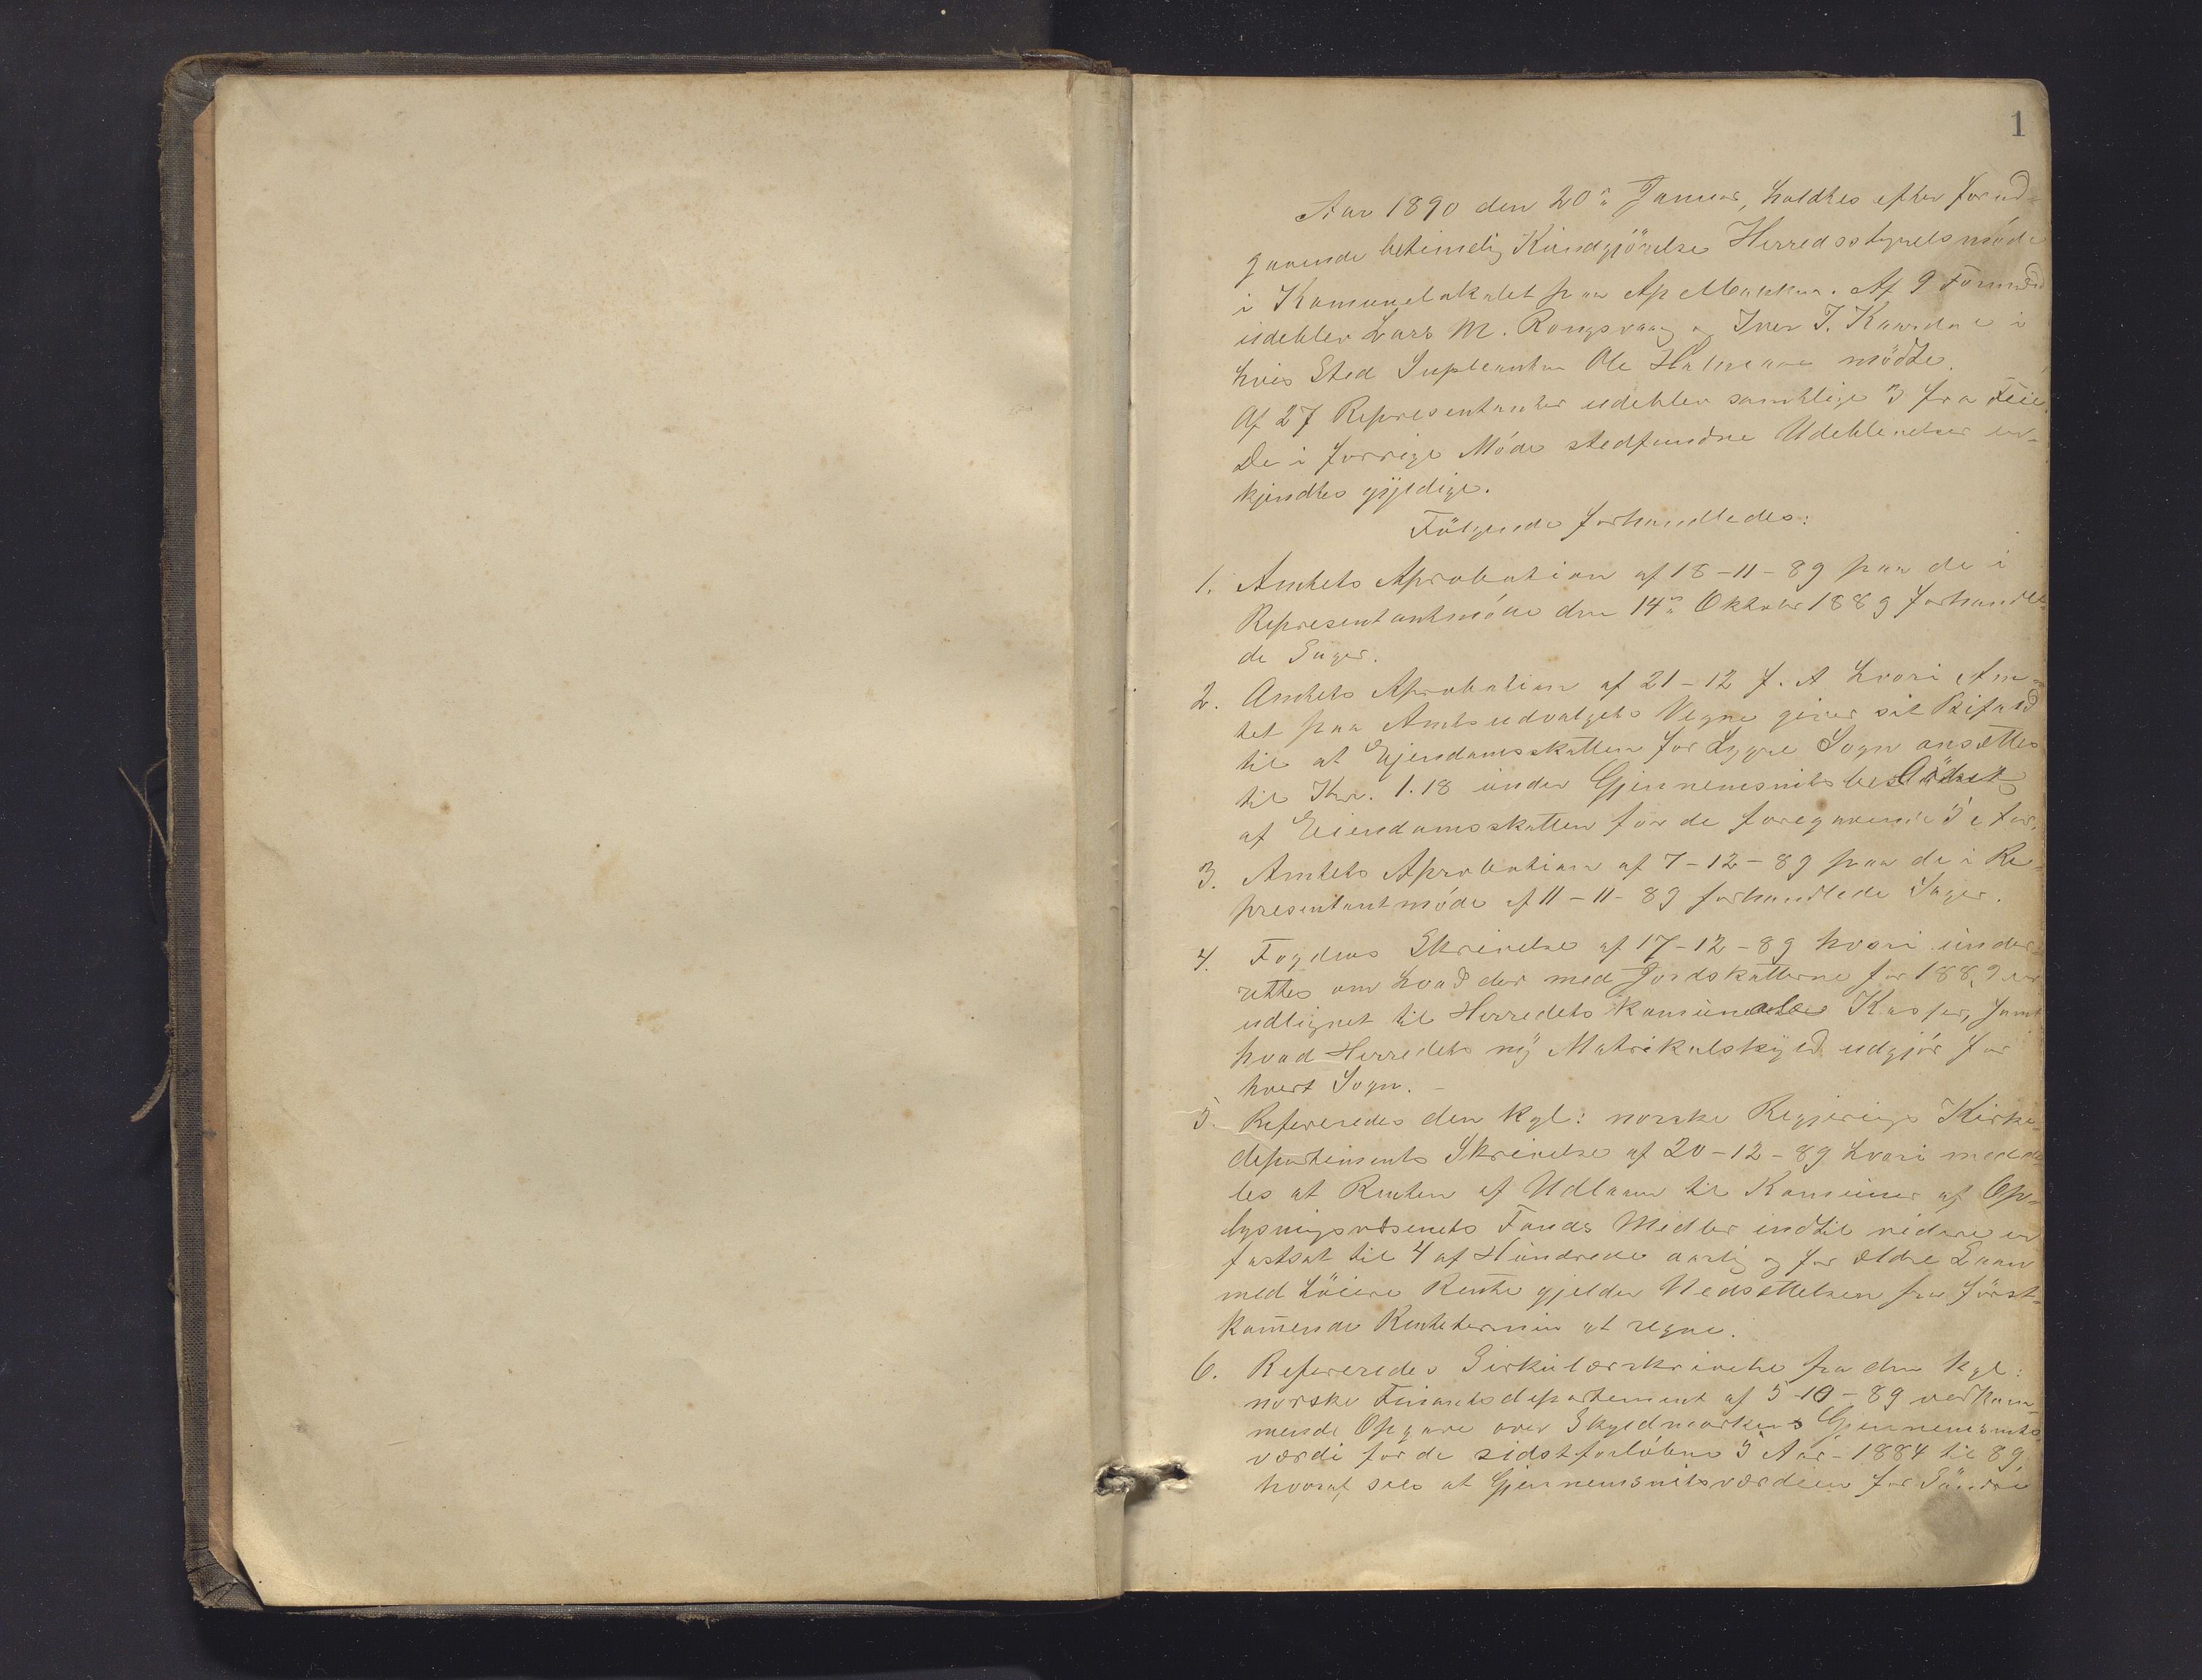 1
Aar 1890 den 20de Januar, holdtes efter forud-
gaaende betimelig Kundgjörelse Herredsstyrelsmöde
i Komunelokalet paa Ap Mærkra. Af 9 Formænd
udeblev Lars M. Rongsvaag og Iver I. Kaardal i
hvis Sted Supleanten Ole Halsvaa mödte.
Af 27 Representanter udeblev samtlige 3 fra Feie.
De i forrige Möde stedfundne Udeblivelser er-
kjendtes gyldige.
Fölgende forhandledes:
1. Amtets Aprobation af 18-11-89 paa de i
Representantmöde den 14de Oktober 1889 forhandle-
de Sager.
2. Amtets Aprobation af 21-12 f. A hvori Am-
tet paa Amtsudvalgets Vegne giver sit Bifald
til at Ejendomsskatten for Lygre Sogn ansættes
til Kr. 1.18 under Gjennemsnitsbelöbet
af Eiendomsskatten for de foregaaende 5 Aar.
3. Amtets Aprobation af 7-12-89 paa de i Re-
presentantmöde af 11-11-89 forhandlede Sager.
4. Fogdens Skrivelse af 17-12-89 hvori under-
rettes om hvad der med Jordskatterne for 1889 er
udlignet til Herredets komunale Kasser, samt
hvad Herredets ny Matrikulskyld udgjör for
hvert Sogn. -
5. Refereredes den kgl: norske Regjerings Kirke-
departements Skrivelse af 20-12-89 hvori medde-
les at Renten af Udlaan til Komuner af Op-
lysningsvæsenets Fonds Midler indtil videre er
fastsat til 4 af Hundrede aarlig og for ældre Laan
med höiere Rente gjelder Nedsættelsen fra först-
kommende Rentetermin at regne.
6. Refereredes Sirkulærskrivelse fra den kgl:
norske Finantsdepartement af 5-10-89 vedkom-
mende Opgave over Skyldmarkens Gjennemsnits-
værdi for de sidstforlöbne 5 Aar - 1884 til 89,
hvoraf sees at Gjennemsnitsværdien for Söndre